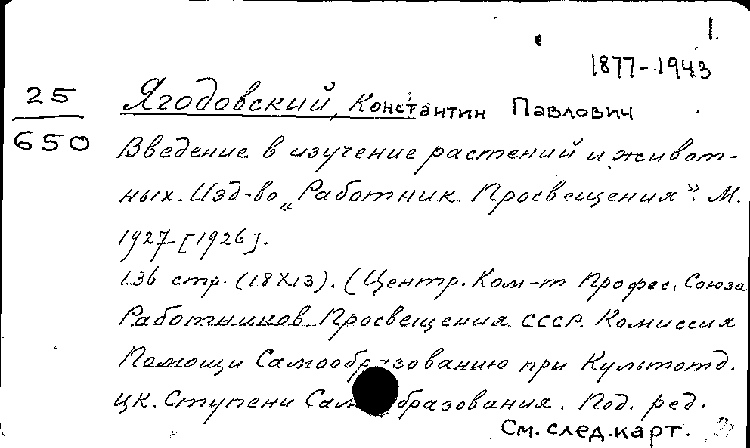 1
1877-1943
25
650
Ягодовский, Константин Павлович
Введение в изучение растений и живот-
ных. Изд-во „Работник Просвещения". М.
1927 [1926].
136 стр. (18х13). (Центр. Ком-т Професс. Союза
Работников Просвещения СССР. Комиссия
Помощи Самообразованию при Культотд.
ЦК. Ступени Сам образования. Под. ред.
См. след. карт.